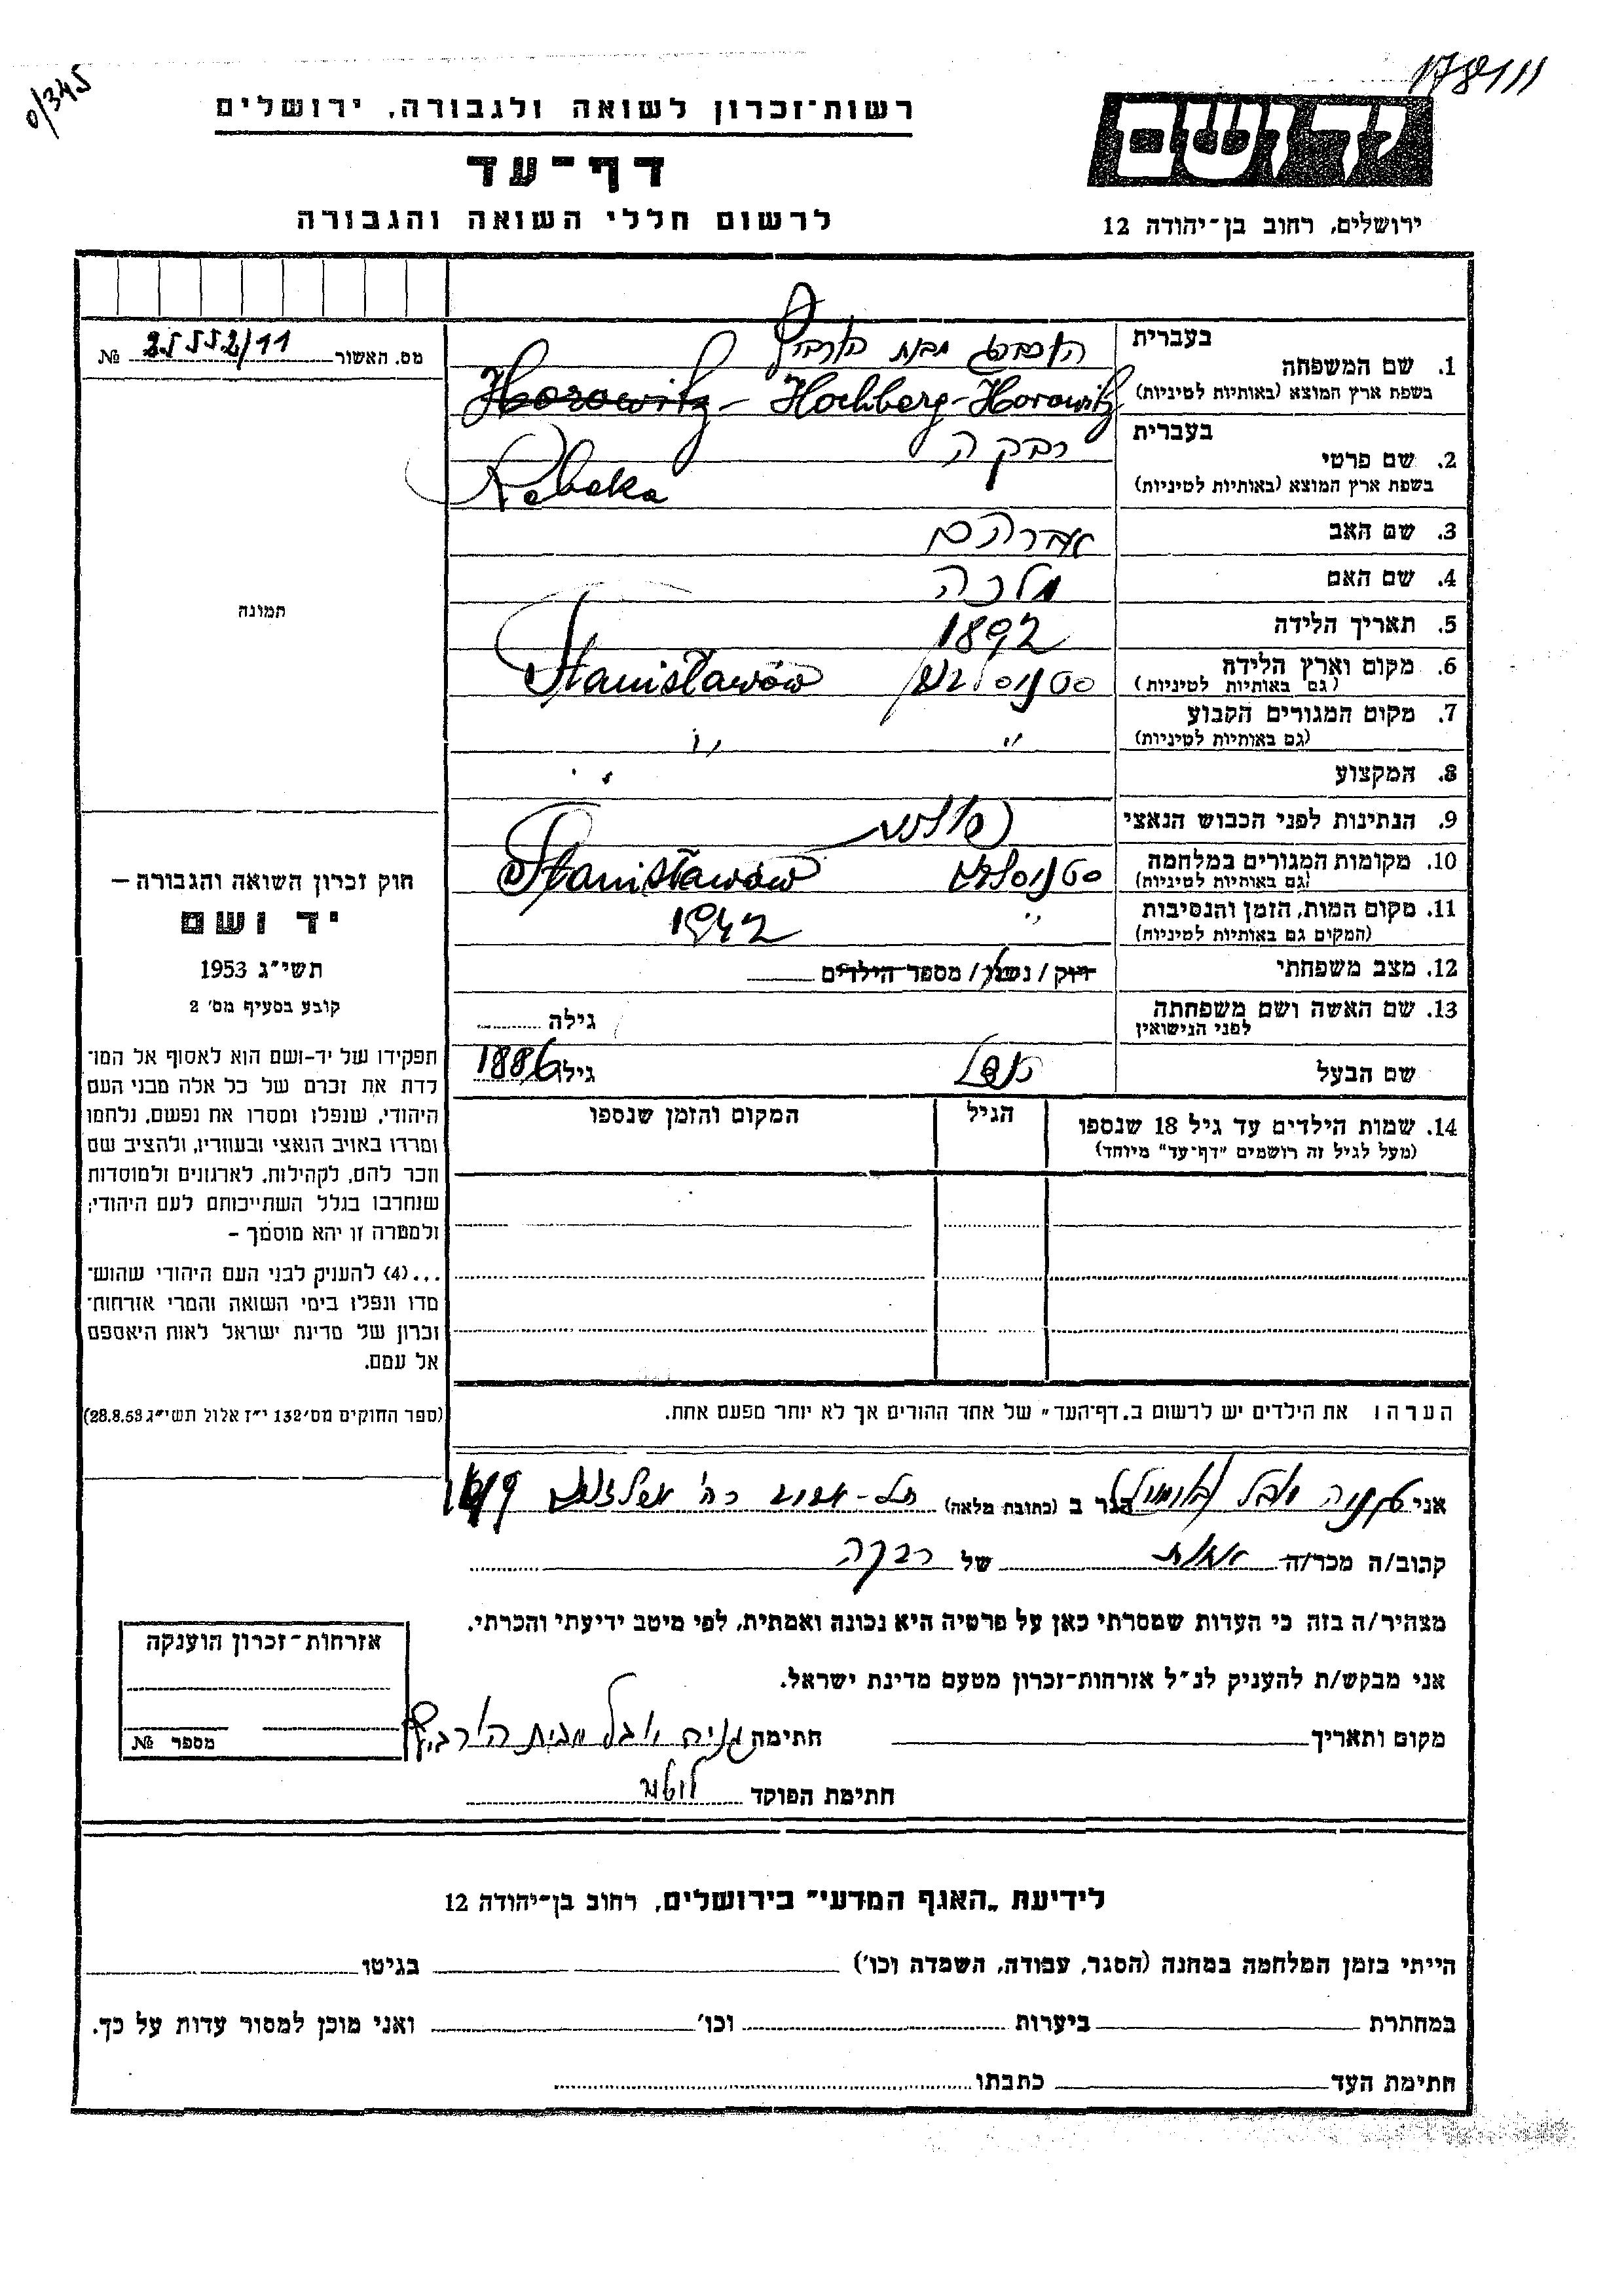 0/345
178111
רשות־זכרון לשואה ולגבורה, ירושלים
דף־עד
לרשום חללי השואה והגבורה
יד ושם
ירושלים, רחוב בן־יהודה 12
מס. האשור 25552/11 №
1. שם המשפחה
בעברית הוכברג מבית הורביץ
בשפת ארץ המוצא (באותיות לטיניות) Horowitz - Hochberg-Horowitz
2. שם פרטי
בעברית רבקה
בשפת ארץ המוצא (באותיות לטיניות) Rebeka
3. שם האב אברהם
4. שם האם מלכה
5. תאריך הלידה 1892
6. מקום וארץ הלידה סטניסלבוב Stanisławów
(גם באותיות לטיניות)
7. מקום המגורים הקבוע " "
(גם באותיות לטיניות)
8. המקצוע
9. הנתינות לפני הכבוש הנאצי
10. מקומות המגורים במלחמה Stanisławów
(גם באותיות לטיניות)
11. מקום המות, הזמן והנסיבות " 1942
(המקום גם באותיות לטיניות)
12. מצב משפחתי רווק / נשוי / מספר הילדים
13. שם האשה ושם משפחתה
לפני הנישואין
גילה
שם הבעל
גילו 1886
14. שמות הילדים עד גיל 18 שנספו
(מעל לגיל זה רושמים "דף־עד" מיוחד)
הגיל
המקום והזמן שנספו
הערה: את הילדים יש לרשום ב„דף־העד" של אחד ההורים אך לא יותר מפעם אחת.
תמונה
חוק זכרון השואה והגבורה —
יד ושם
תשי״ג 1953
קובע בסעיף מס׳ 2
תפקידו של יד-ושם הוא לאסוף אל המו־
לדת את זכרם של כל אלה מבני העם
היהודי, שנפלו ומסרו את נפשם, נלחמו
ומרדו באויב הנאצי ובעוזריו, ולהציב שם
וזכר להם, לקהילות, לארגונים ולמוסדות
שנחרבו בגלל השתייכותם לעם היהודי;
ולמטרה זו יהא מוסמך –
...(4) להעניק לבני העם היהודי שהוש־
מדו ונפלו בימי השואה והמרי אזרחות־
זכרון של מדינת ישראל לאות היאספם
אל עמם.
(ספר החוקים מס׳ 132 י״ז אלול תשי״ג 28.8.53)
אני הגר ב (כתובת מלאה) תל-אביב רח׳
קרוב/ה מכר/ה אחות של רבקה
מצהיר/ה בזה כי העדות שמסרתי כאן על פרטיה היא נכונה ואמתית, לפי מיטב ידיעתי והכרתי.
אני מבקש/ת להעניק לנ״ל אזרחות־זכרון מטעם מדינת ישראל.
מקום ותאריך חתימה מבית הורביץ
חתימת הפוקד
אזרחות־זכרון הוענקה
מספר №
לידיעת „האגף המדעי" בירושלים, רחוב בן־יהודה 12
הייתי בזמן המלחמה במחנה (הסגר, עבודה, השמדה וכו׳) בגיטו
במחתרת ביערות וכו׳ ואני מוכן למסור עדות על כך.
חתימת העד כתבתו